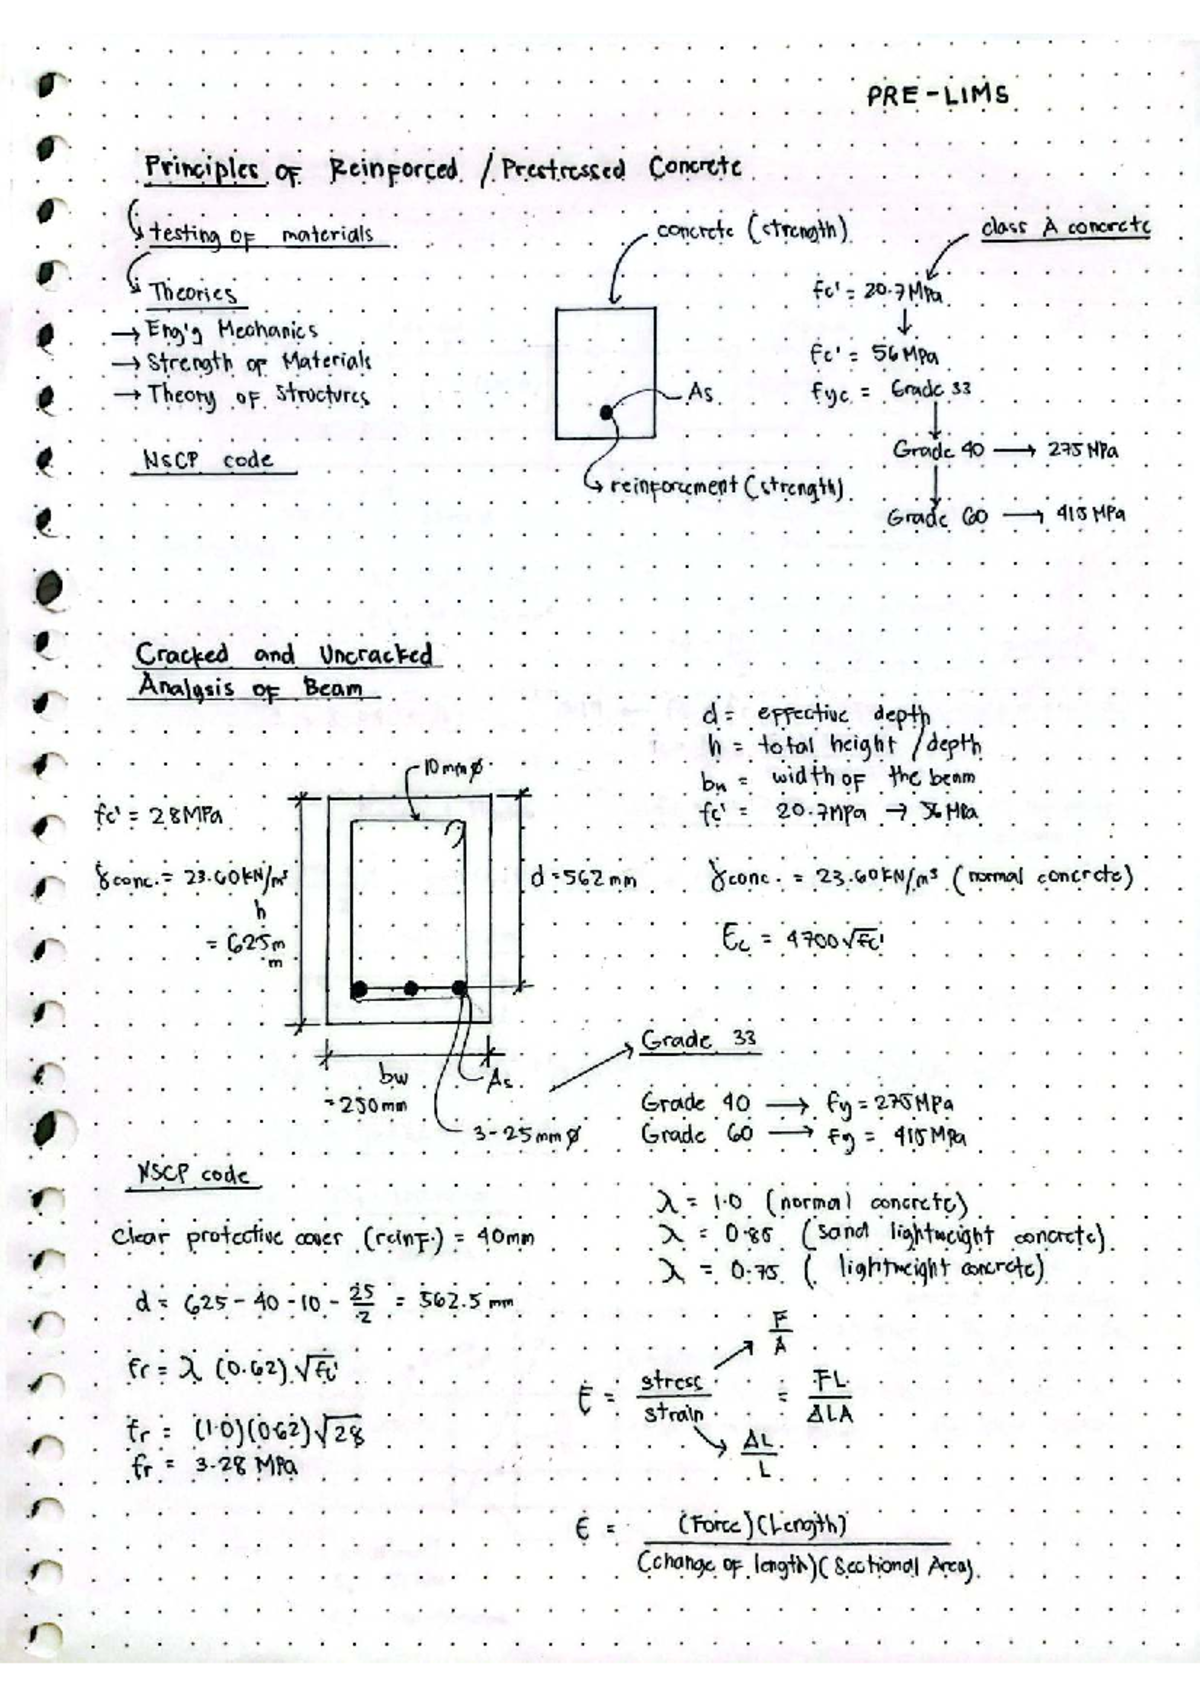 PRE-LIMS
Principles of Reinforced / Prestressed Concrete
testing of materials
Theories
→ Eng'g Mechanics
→ Strength of Materials
→ Theory of Structures
NSCP code
concrete (strength)
As
reinforcement (strength)
class A concrete
fc' = 20.7 MPa
↓
fc' = 56 MPa
fyc = Grade 33
Grade 40 → 275 MPa
Grade 60 → 415 MPa
Cracked and Uncracked
Analysis of Beam
d = effective depth
h = total height / depth
bw = width of the beam
fc' = 20.7 MPa → 56 MPa
γconc. = 23.60 kN/m³ (normal concrete)
Ec = 4700√fc'
10 mm ϕ
fc' = 28 MPa
γconc. = 23.60 kN/m³
h
= 625m
m
d = 562 mm
bw
= 250 mm
As
3 - 25 mm ϕ
Grade 33
Grade 40 → fy = 275 MPa
Grade 60 → fy = 415 MPa
NSCP code
clear protective cover (reinf.) = 40mm
d = 625 - 40 - 10 - 25/2 = 562.5 mm
fr = λ (0.62) √fc'
fr = (1.0)(0.62)√28
fr = 3.28 MPa
λ = 1.0 (normal concrete)
λ = 0.85 (sand lightweight concrete)
λ = 0.75 ( lightweight concrete)
F/A
E = stress/strain = FL/ΔLA
ΔL/L
E = (Force)(Length)
(change of length)(Sectional Area)